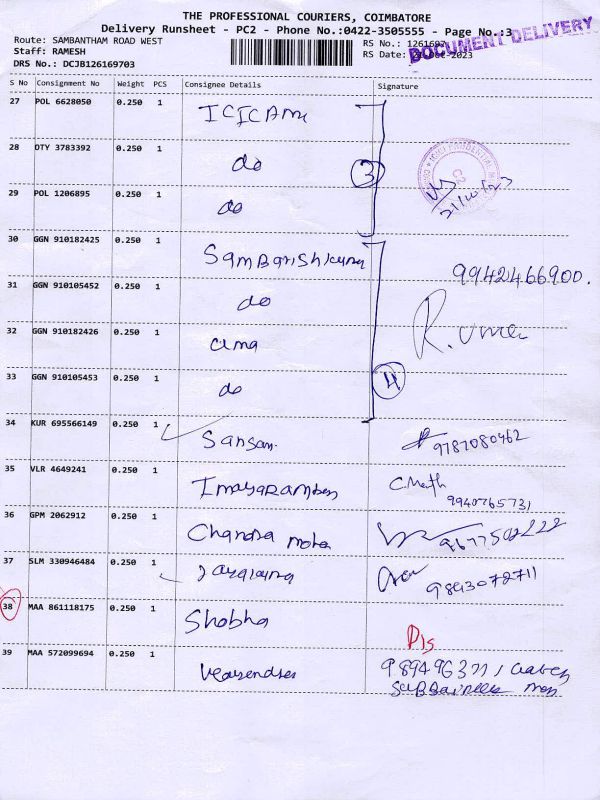 THE PROFESSIONAL COURIERS, COIMBATORE
Delivery Runsheet - PC2 - Phone No.:0422-3505555 - Page No.:3
DOCUMENT DELIVERY
Route: SAMBANTHAM ROAD WEST
Staff: RAMESH
DRS No.: DCJB126169703
RS No.: 1261697
RS Date: -2023
S No Consignment No Weight PCS Consignee Details Signature
27 POL 6628050 0.250 1
28 DTY 3783392 0.250 1 do
3
29 POL 1206895 0.250 1 do
30 GGN 910182425 0.250 1
9942466900.
31 GGN 910105452 0.250 1 do
R. uma
32 GGN 910182426 0.250 1 uma
33 GGN 910105453 0.250 1 do
4
34 KUR 695566149 0.250 1 Sansan 9787080462
35 VLR 4649241 0.250 1 9940765731
36 GPM 2062912 0.250 1 Chandra 9677502222
37 SLM 330946484 0.250 1 9893072711
38 MAA 861118175 0.250 1 Shobha
39 MAA 572099694 0.250 1